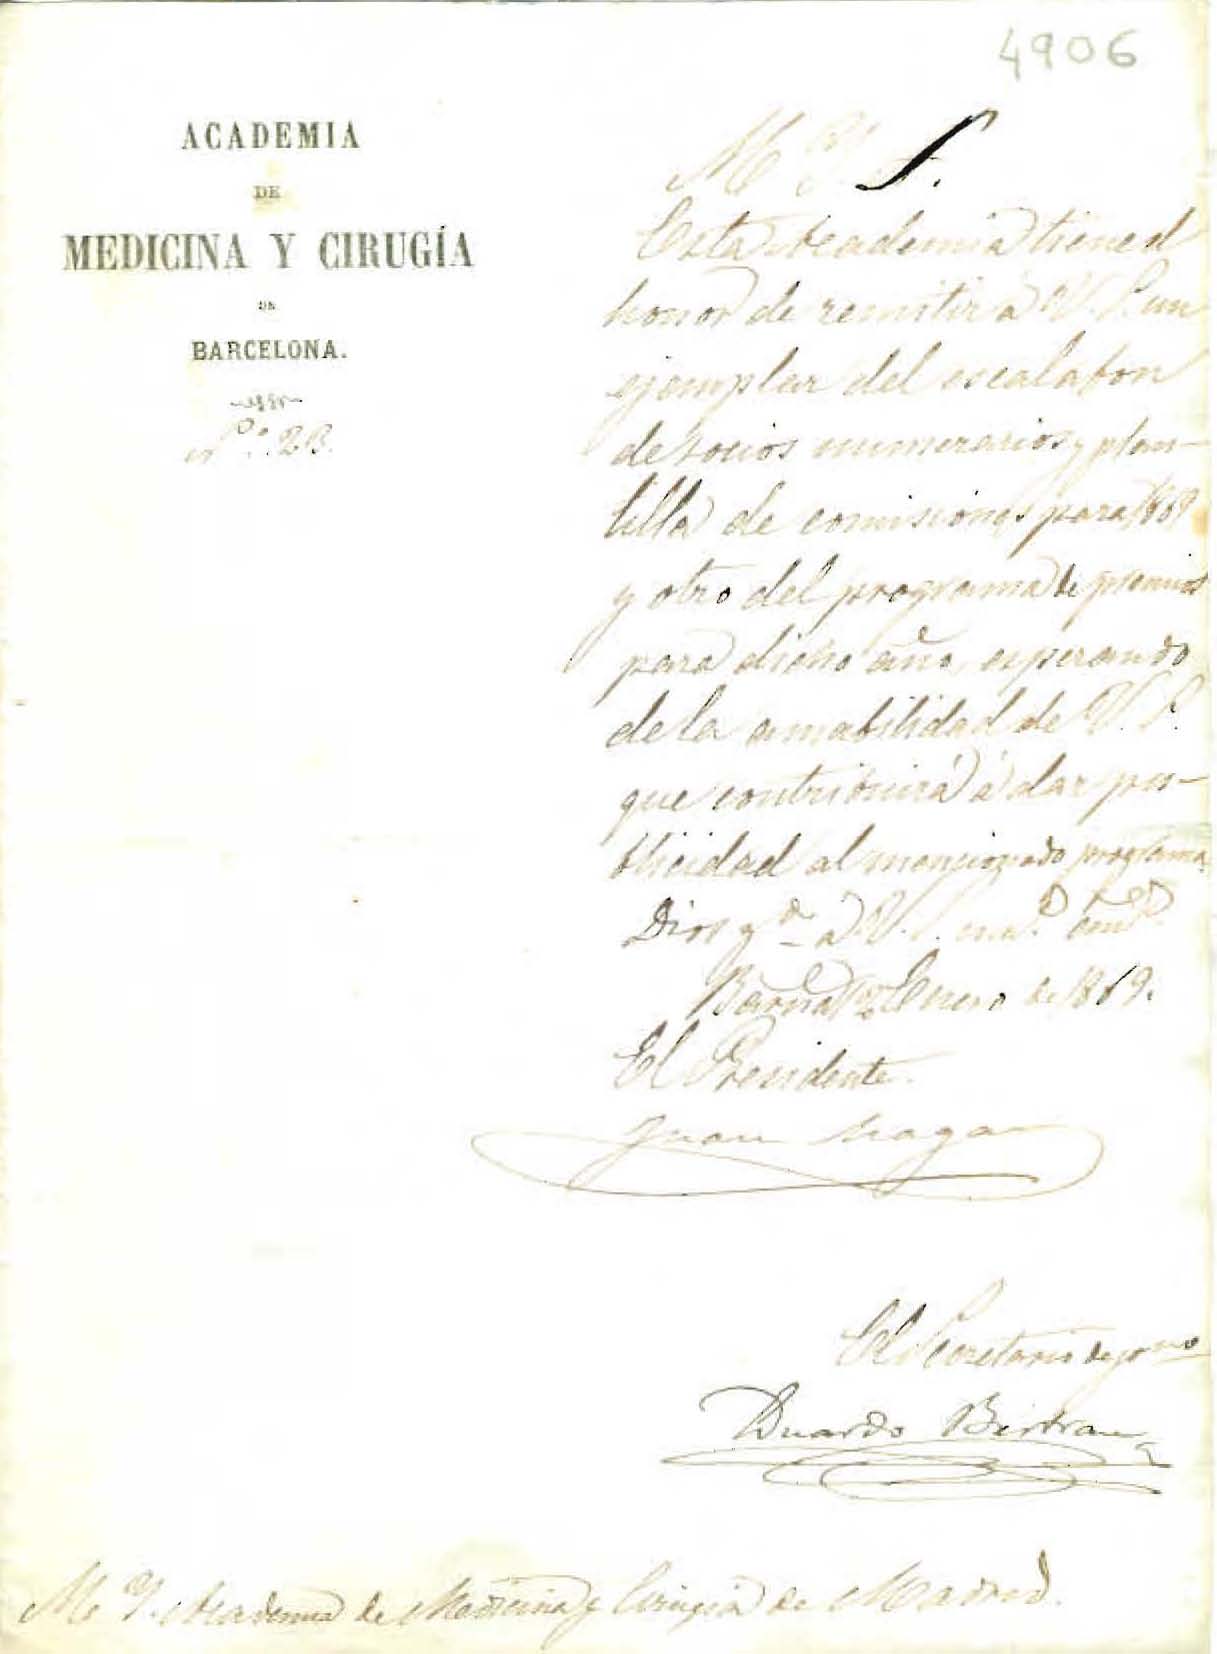 4906
ACADEMIA
DE
MEDICINA Y CIRUGÍA
DE
BARCELONA.
Nº. 23.
M. Y. S.
Esta Academia tiene el
honor de remitir á V. S. un
ejemplar del escalafon
de socios numerarios y plan-
tilla de comisiones para 1869
y otro del programa de premios
para dicho año, esperando
de la amabilidad de V. S.
que contribuirá á dar pu-
blicidad al mencionado programa
Dios gde á V. S. ms. as.
Barna Enero de 1869.
El Presidente
Juan Magaz
El Secretario de gono
Duardo Bertran
M. Y. Academia de Medicina y Cirugía de Madrid.